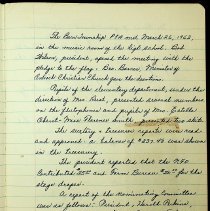 The Bern Township PTA met March 26, 1962,
in the music room of the high school. Bob
Nelson, president, opened the meeting with the
pledge to the flag. Geo. Barnes, Minister of
Christian Church gave the devotions.
Pupils of the elementary department, under the
direction of Mrs. Best, presented several numbers
on the flutophones and pupils of Mrs.
and Mrs. Florence Smith presented two skits.
The sectary & treasurers reports were read
and approved. a balance of $237.93 was shown
in the treasury.
The president reported that the
Contributed and Farm Bureau for the
stage drapes.
A report of the Nominating Committee
was as follows: President,